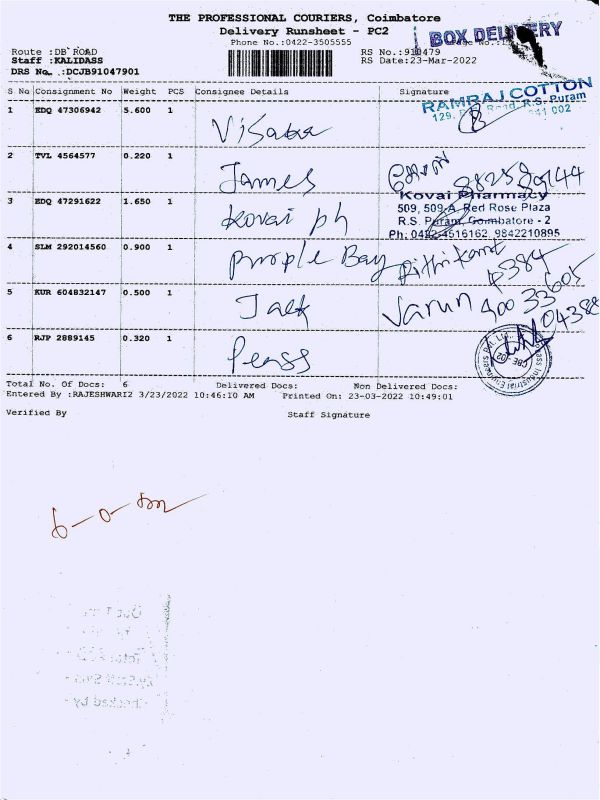 THE PROFESSIONAL COURIERS, Coimbatore
Delivery Runsheet - PC2
BOX DELIVERY
Phone No.:0422-3505555
Route :DB ROAD
RS No.:910479
Staff :KALIDASS
RS Date:23-Mar-2022
DRS No. :DCJB91047901
S No Consignment No Weight PCS Consignee Details Signature
RAMRAJ COTTON
129, Road, R.S. Puram
641 002
1 EDQ 47306942 5.600 1
2 TVL 4564577 0.220 1 James
3 EDQ 47291622 1.650 1 Kovai ph
Kovai Pharmacy
509, 509-A, Red Rose Plaza
R.S. Puram, Coimbatore - 2
Ph: 0422-4516162, 9842210895
4 SLM 292014560 0.900 1 Purple Bay
5 KUR 604832147 0.500 1 Jack Varun
6 RJP 2889145 0.320 1
CBE - 02
Total No. Of Docs: 6 Delivered Docs: Non Delivered Docs:
Entered By :RAJESHWARI2 3/23/2022 10:46:10 AM Printed On: 23-03-2022 10:49:01
Verified By Staff Signature